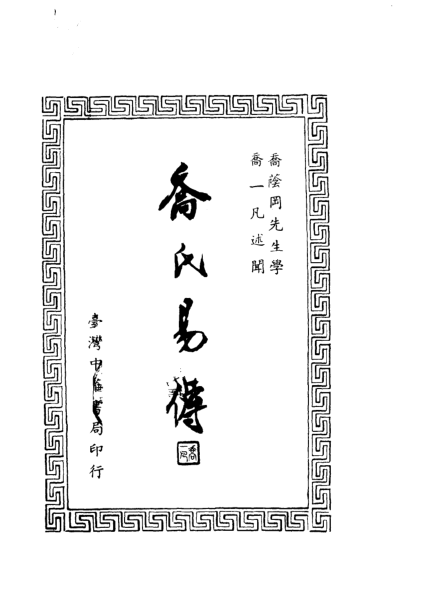 喬蔭岡先生學
喬一凡述聞
喬氏易傳
喬一凡
臺灣中華書局印行